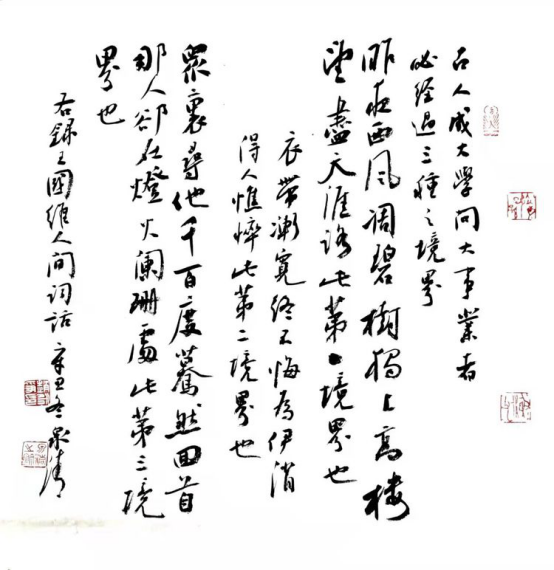 古人成大學问大事業者
必经過三種之境界
昨夜西风凋碧樹独上高楼
望盡天涯路此第一境界也
衣带漸寬终不悔为伊消
得人憔悴此第二境界也
眾裏尋他千百度驀然回首
那人卻在燈火阑珊處此第三境
界也
右録王國维人间词话辛丑冬泉清